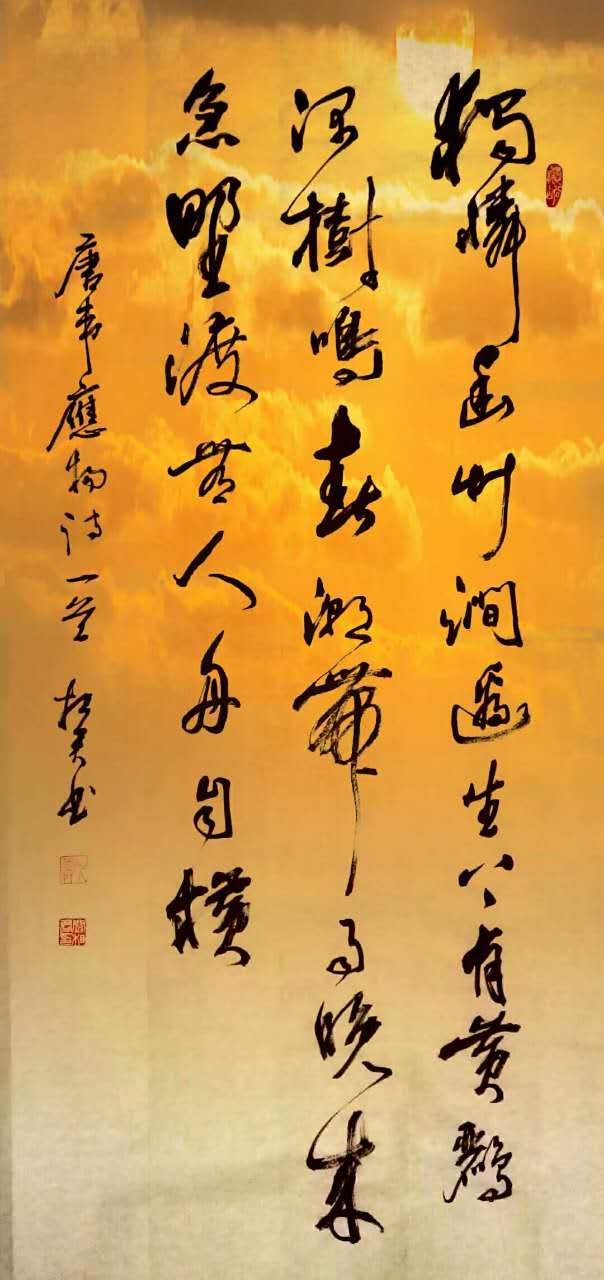 獨憐幽草澗邊生上有黃鸝
深樹鳴春潮帶雨晚來
急野渡無人舟自橫
唐韋應物詩一首 書